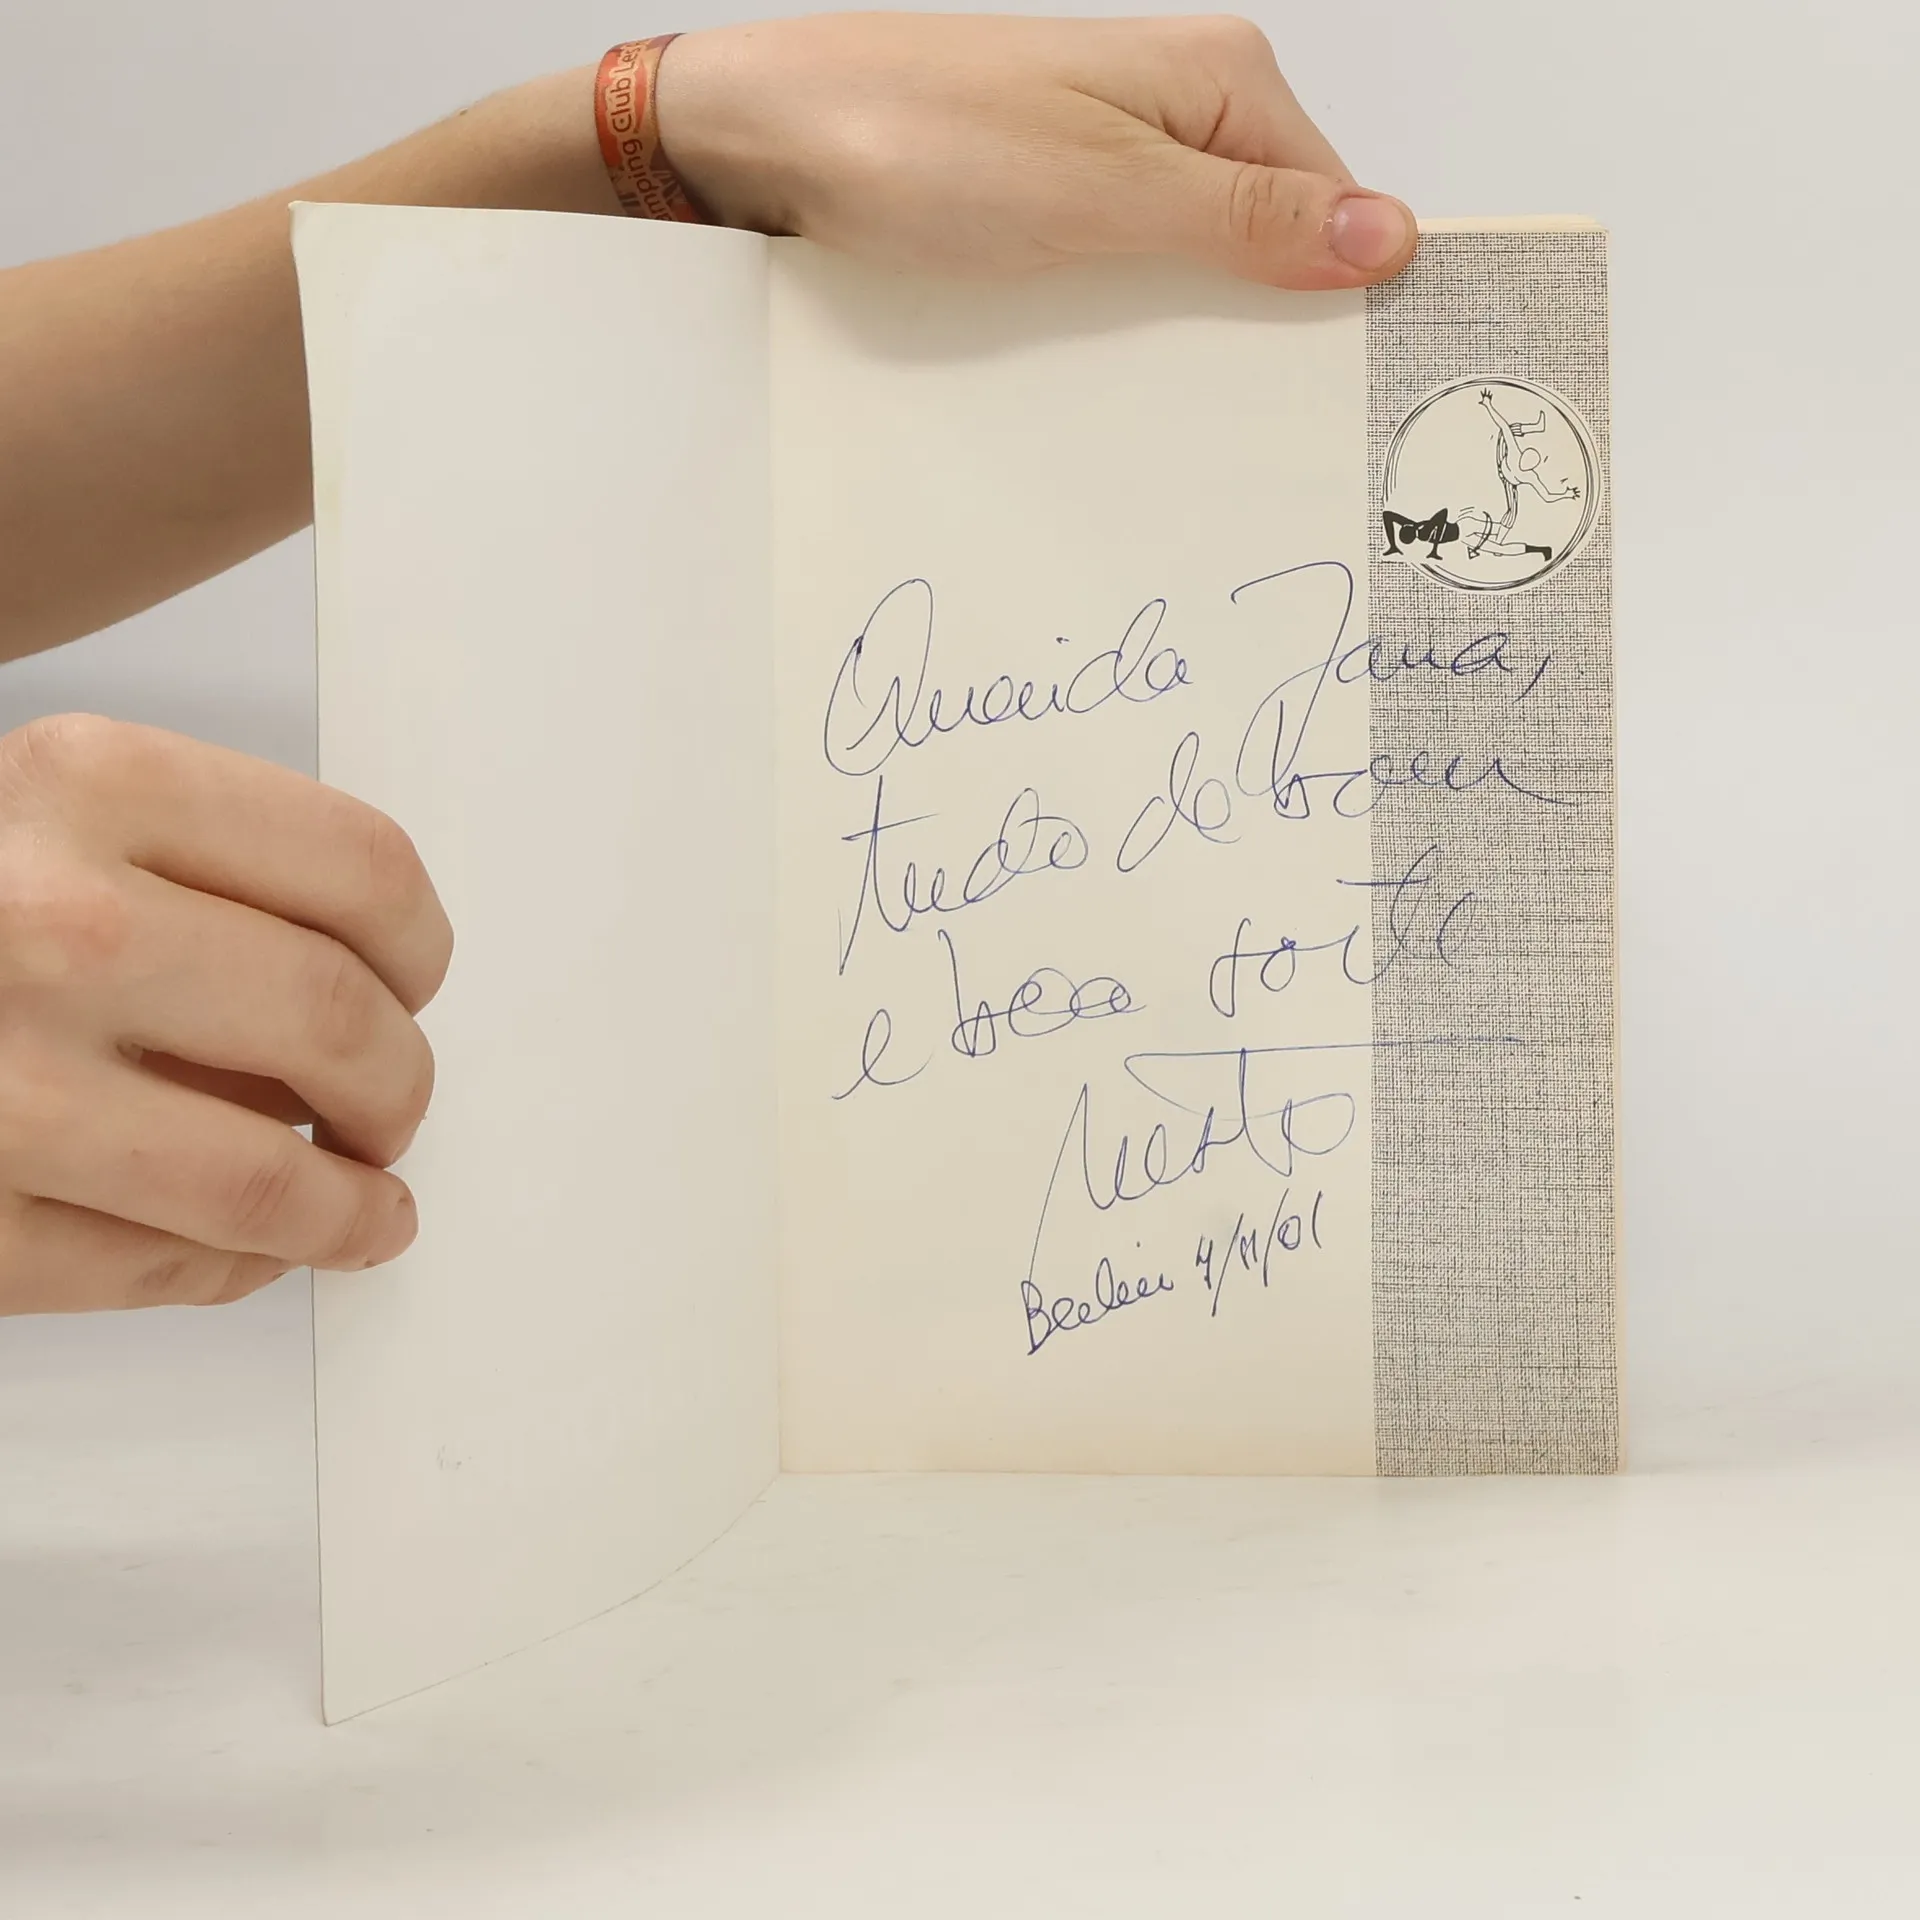 amping Club Les
Querida Jana,
tudo de bom
e boa sorte
Nestor
Berlin 4/11/01